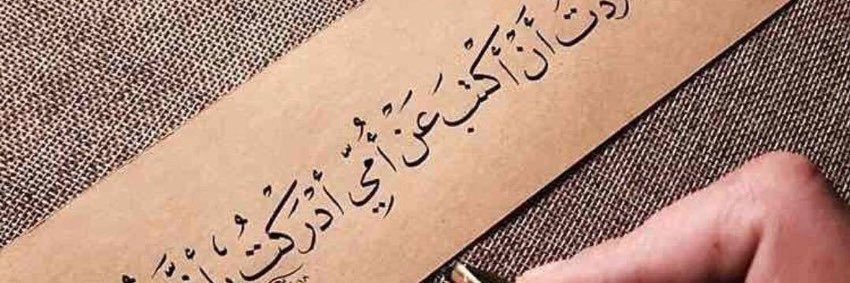 أَنْ أَكْتُبَ عَنْ أُمِّي أَدْرَكْتُ